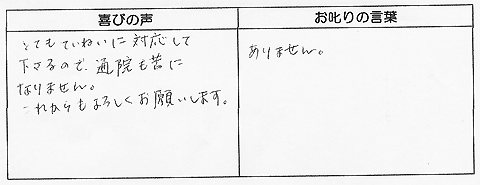 喜びの声
とてもていねいに対応して
下さるので、通院も苦に
なりません。
これからもよろしくお願いします。
お叱りの言葉
ありません。